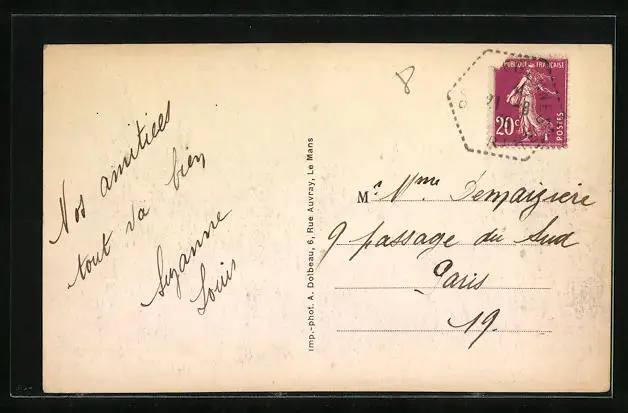 Nos amitiées
tout va bien
Suzanne
Louis
Imp.-phot. A. Dolbeau, 6, Rue Auvray, Le Mans
8
REPUBLIQUE FRANÇAISE
20c
POSTES
Mr Mme Demaizière
9 passage du Sud
Paris
19.